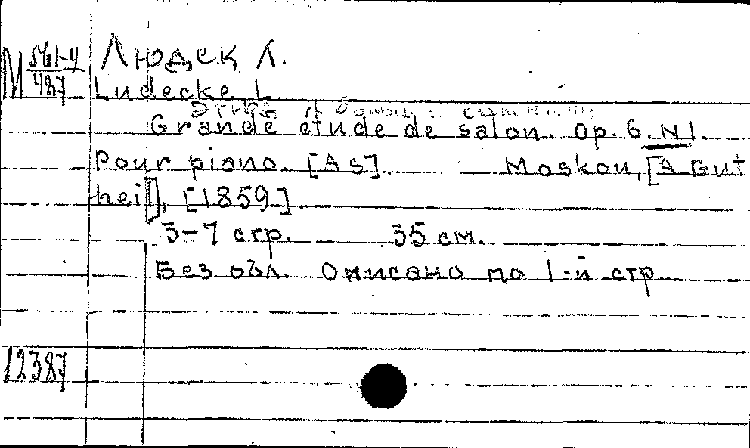 М 561-4/487
Людек Л.
Ludecke L
Grande etude de salon. Op. 6. N1.
Pour piano. [As]. Moskou, [A Gut
heil], [1859]
3-7 стр. 35 см.
Без обл. Описано по 1-й стр
12387